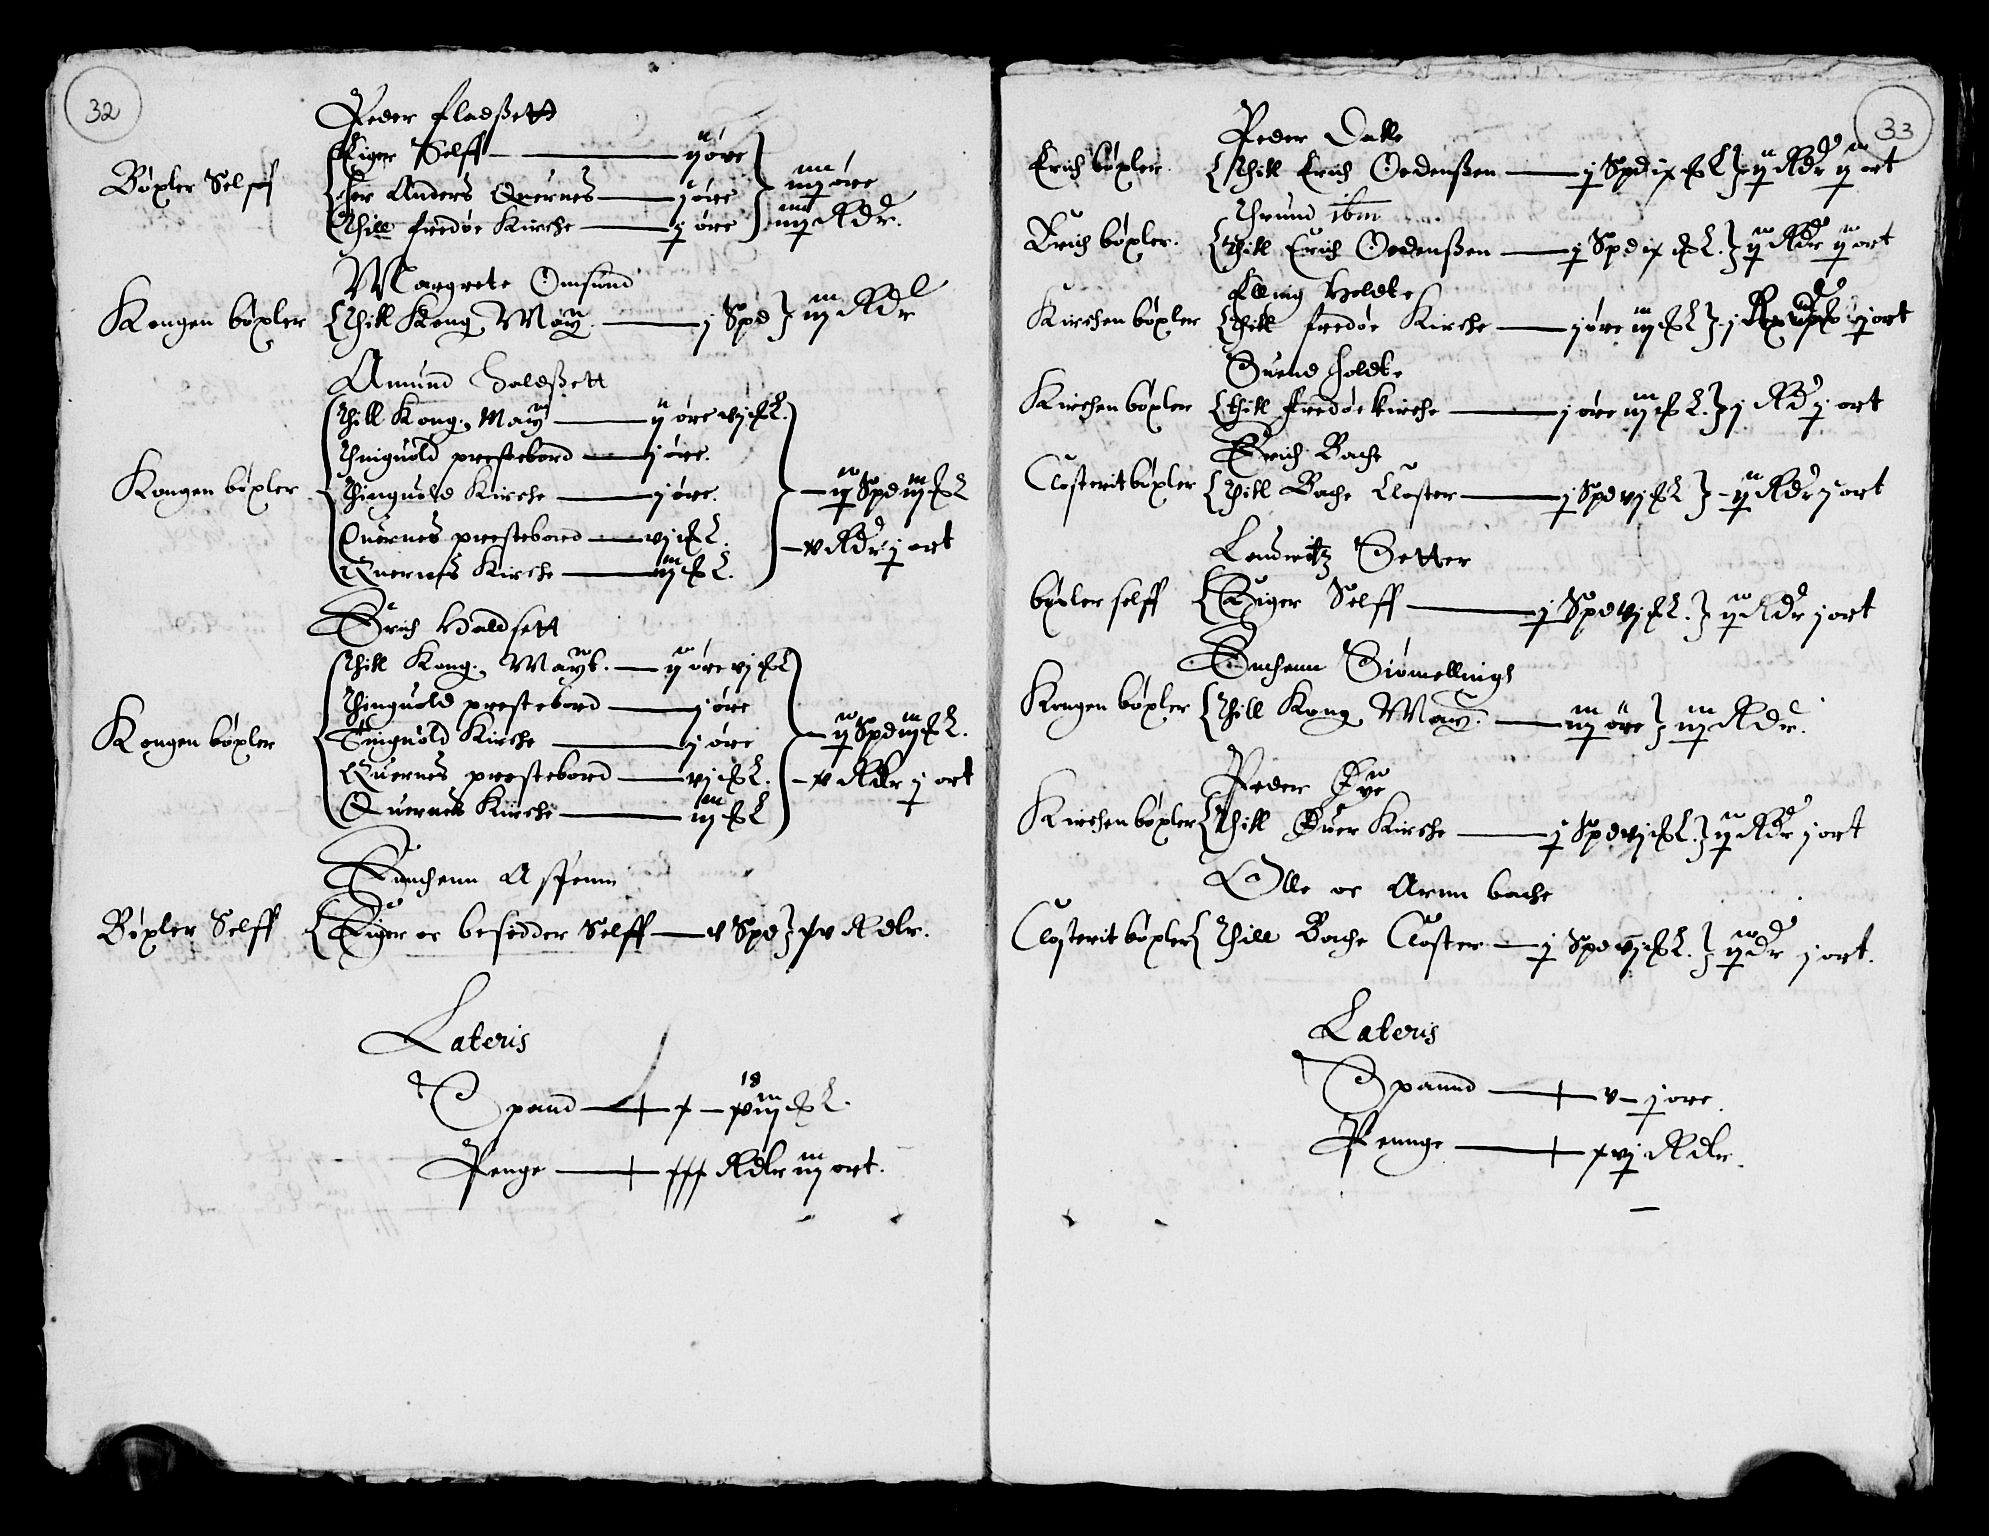 32
Peder Fladßett
Böxler Selff
Eiger Selff — ij öre
her Anders Quernes — j öre
thill Fredöe Kirche — j öre
iiij öre
iiij Rdr.
Margrete Omsund
Kongen böxler
Thill Kong. May. — j Spd
iij Rdr
Amund Haldßett
Kongen böxler
Thill Kong. May — ij öre vj
Thinguold prestebord — j öre.
Thinguold Kirche — j öre.
Quernes prestebord — vj
Quernes Kirche — iij
— ij Spd iij
— v Rdr j ort
Erich Haldsett
Kongen böxler
Thill Kong. Mayt. — ij öre vj
Thinguold prestebord — j öre
Tinguold Kirche — j öre
Quernes prestebord — vj
Quernes Kirche — iij
— ij Spd iij
— v Rdlr j ort
Enchenn Aspenn
Böxler Selff
Eiger oc besidder Selff — v Spd xv Rdlr.
Lateris
Spand — x — 18 xviij
Penge — xxx Rdlr iij ort.
33
Peder Dalle
Erich böxler.
Thill Erich Oedenßen — j Spd ix ij Rdr ij ort
Thrund ibm
Erich böxler.
Thill Erich Oedenßen — j Spd ix ij Rdr ij ort
Elling Holdte
Kirchen böxler
Thill Fredöe Kirche — j öre iij j j ort
Suend Holdte
Kirchen böxler
Thill Fredöe kirche — j öre iij j Rd j ort
Erich Bache
Closterit böxler
Thill Bache Closter — j Spd vj — ij Rdr j ort
Loudwitz Setter
böxler selff
Eiger Selff — j Spd vj ij Rdr j ort
Enchenn Siömellingh
Kongen böxler
Thill Kong. May. — iij öre iij Rdr.
Peder Öye
Kirchen böxler
Thill Öuer Kirche — j Spd vj ij Rdr j ort
Olle oc Arnn bache
Closterit böxler
Thill Bache Closter — j Spd vj ij dr j ort.
Lateris
Spannd — v — j öre.
Pennge — xvj Rdlr.